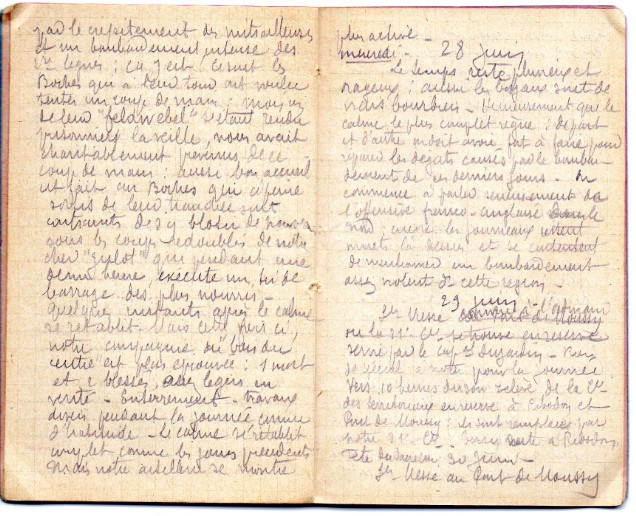 par le crépitement des mitrailleuses
et un bombardement intense des
1ères lignes ; ce sont
Boches qui à leur tour ont voulu
tenter un coup de main ; mais un
de leur "feldwebel" s'étant rendu
prisonnier la veille, nous avait
charitablement prévenus de ce
coup de main : aussi bon accueil
est fait aux Boches qui à peine
sortis de leur tranchée sont
contraints de s'y
sous les coups redoublés de notre
cher qui pendant une
demi heure, exécute un tir de
barrage des plus nourris -
Quelques instants après le calme
se rétablit. Mais cette fois ci,
notre compagnie du "bois du
centre" est plus éprouvée : 1 mort
et 2 blessés, assez légers en
- Enterrement - Travaux
divers pendant la journée comme
d'habitude - Le calme se rétablit
complet comme les jours précédents
Mais notre artillerie se montre
plus active -
mercredi - 28 Juin
Le temps reste pluvieux et
rageux : aussi les boyaux sont de
vrais bourbiers - Heureusement que le
calme le plus complet règne ; de part
et d'autre on doit avoir fort à faire pour
réparer les dégâts causés par le bombar-
dement de ces derniers jours - On
commence à parler sérieusement de
l'offensive franco-anglaise dans le
nord ; encore les journaux restent
muets là dessus et se contentent
de mentionner un bombardement
assez violent de cette région -
29 Juin
Ste Messe de Moussy
où la 21e Cie se trouve en réserve
servie par le cap. Dujardin -
pour la journée
Vers 10 heures du soir relève de la Cie
des en réserve à et
Pont de Moussy ; ils sont remplacés par
notre 21e Cie -
30 Juin -
Ste Messe au Pont de Moussy